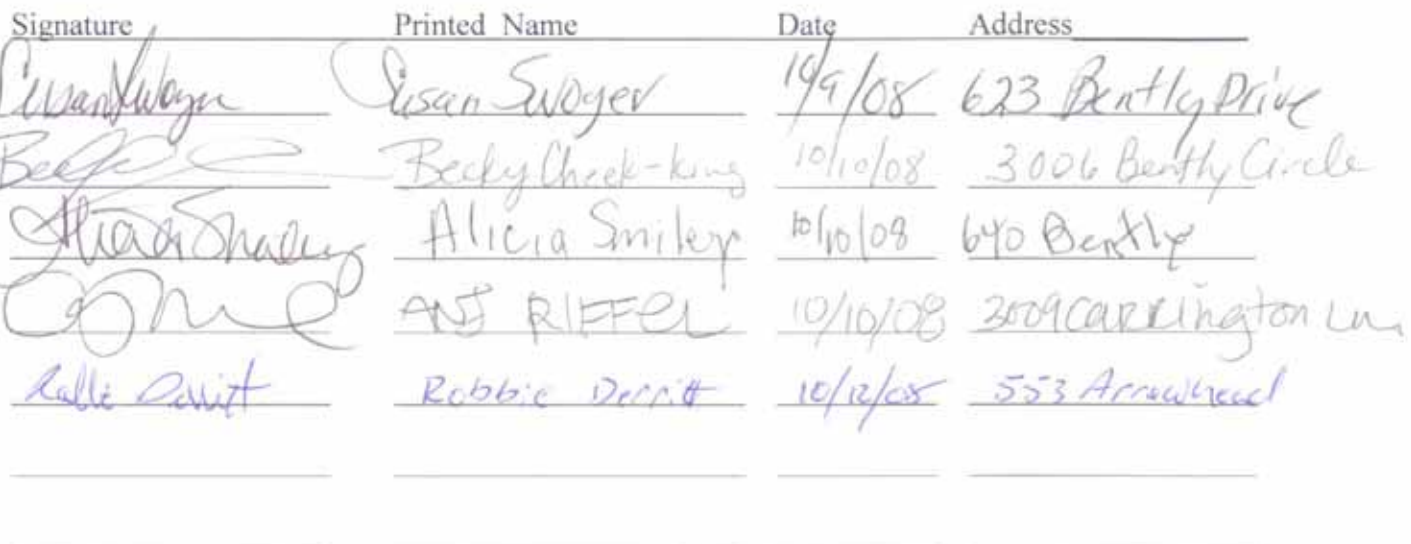 Signature Printed Name Date Address
Susan Swoyer Susan Swoyer 10/9/08 623 Bently Drive
Becky Cheek-king 10/10/08 3006 Bently Circle
Alicia Smiley Alicia Smiley 10/10/08 640 Bently
RIFFEL 10/10/08 3009 CARRington Ln
Robbie Derritt Robbie Derritt 10/12/08 553 Arrowhead